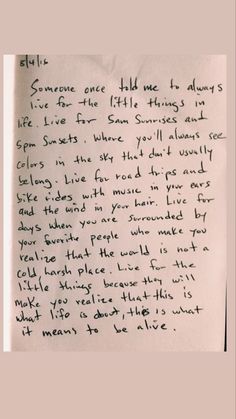 8/4/16
Someone once told me to always
live for the little things in
life. Live for 5am Sunrises and
5pm Sunsets, where you'll always see
colors in the sky that don't usually
belong. Live for road trips and
bike rides with music in your ears
and the wind in your hair. Live for
days when you are surrounded by
your favorite people who make you
realize that the world is not a
cold harsh place. Live for the
little things because they will
make you realize that this is
what life is about, this is what
it means to be alive.